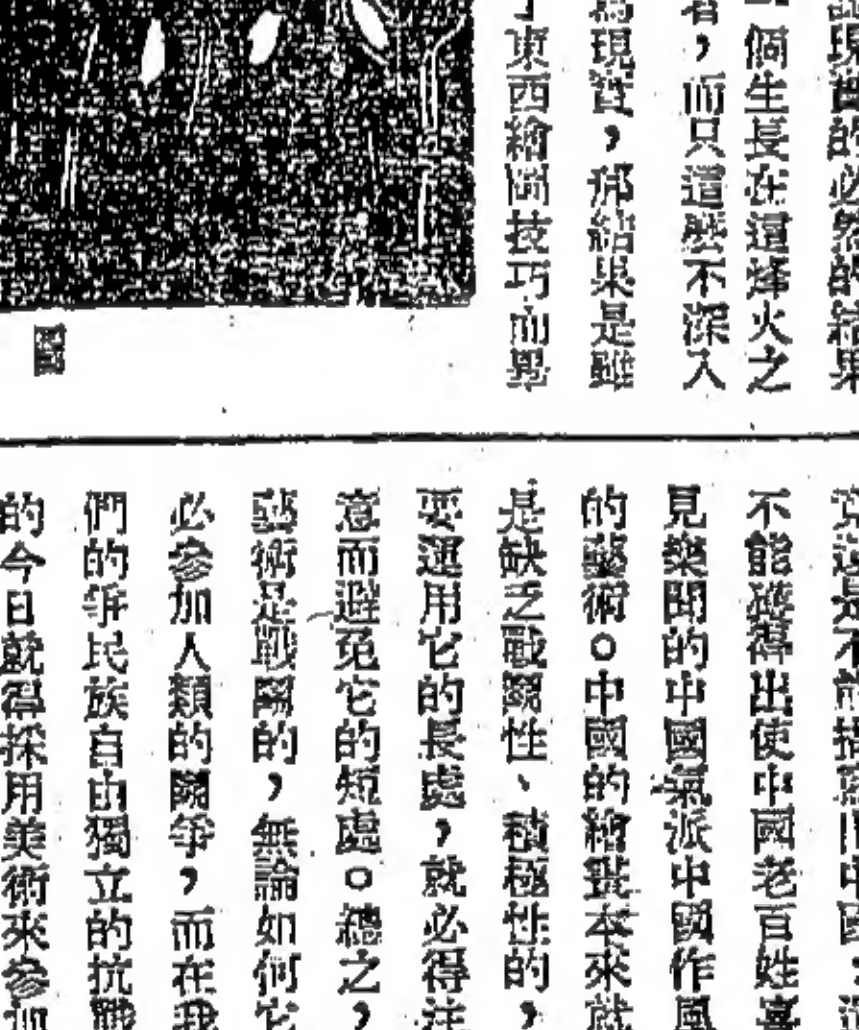 現實的必然的結果
一個生長在這烽火之
者，而只這麽不深入
爲現實，那結果是雖
了東西繪圖技巧而畢
圖
不能獲得出使中國老百姓喜
見樂聞的中國氣派中國作風
的藝術。中國的繪畫本來就
是缺乏戰鬭性、積極性的，
要運用它的長處，就必得注
意而避免它的短處。總之，
藝術是戰鬭的，無論如何它
必參加人類的鬭爭，而在我
們的爭民族自由獨立的抗戰
的今日就得採用美術來參加